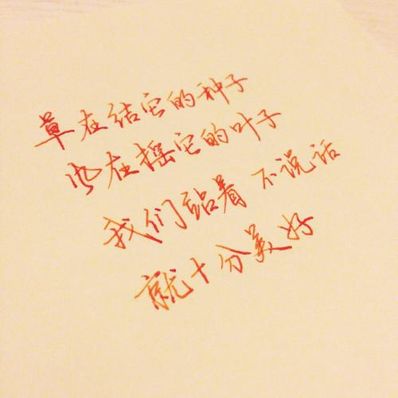 草在结它的种子
风在摇它的叶子
我们站着 不说话
就十分美好